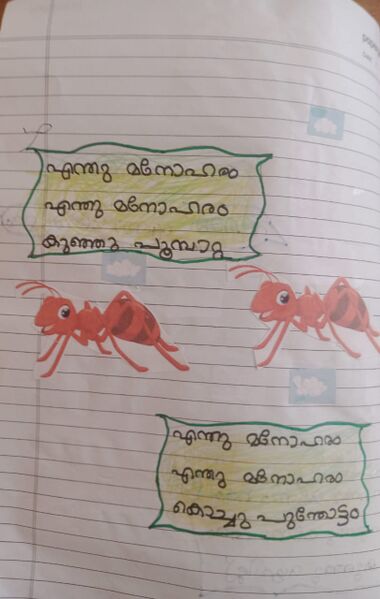 എന്തു മനോഹരം
എന്തു മനോഹരം
കുഞ്ഞു പൂമ്പാറ്റ
എന്തു മനോഹരം
എന്തു മനോഹരം
കൊച്ചു പൂന്തോട്ടം